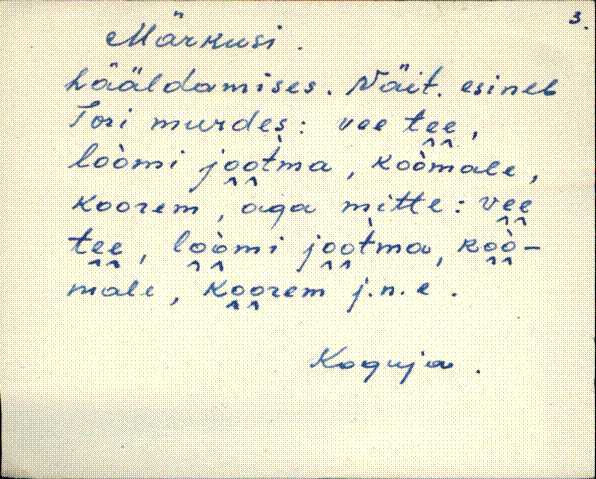 3.
Märkusi.
hääldamises. Näit. esineb
Tori murdes: vee te̬e̬,
loòmi jo̬o̬t̀ma, koòmale,
koorem, aga mitte: ve̬e̬
te̬e̬, lo̬ò̬mi jo̬o̬t̀ma, ko̬ò̬-
male, ko̬o̬rem j.n.e.
Koguja.